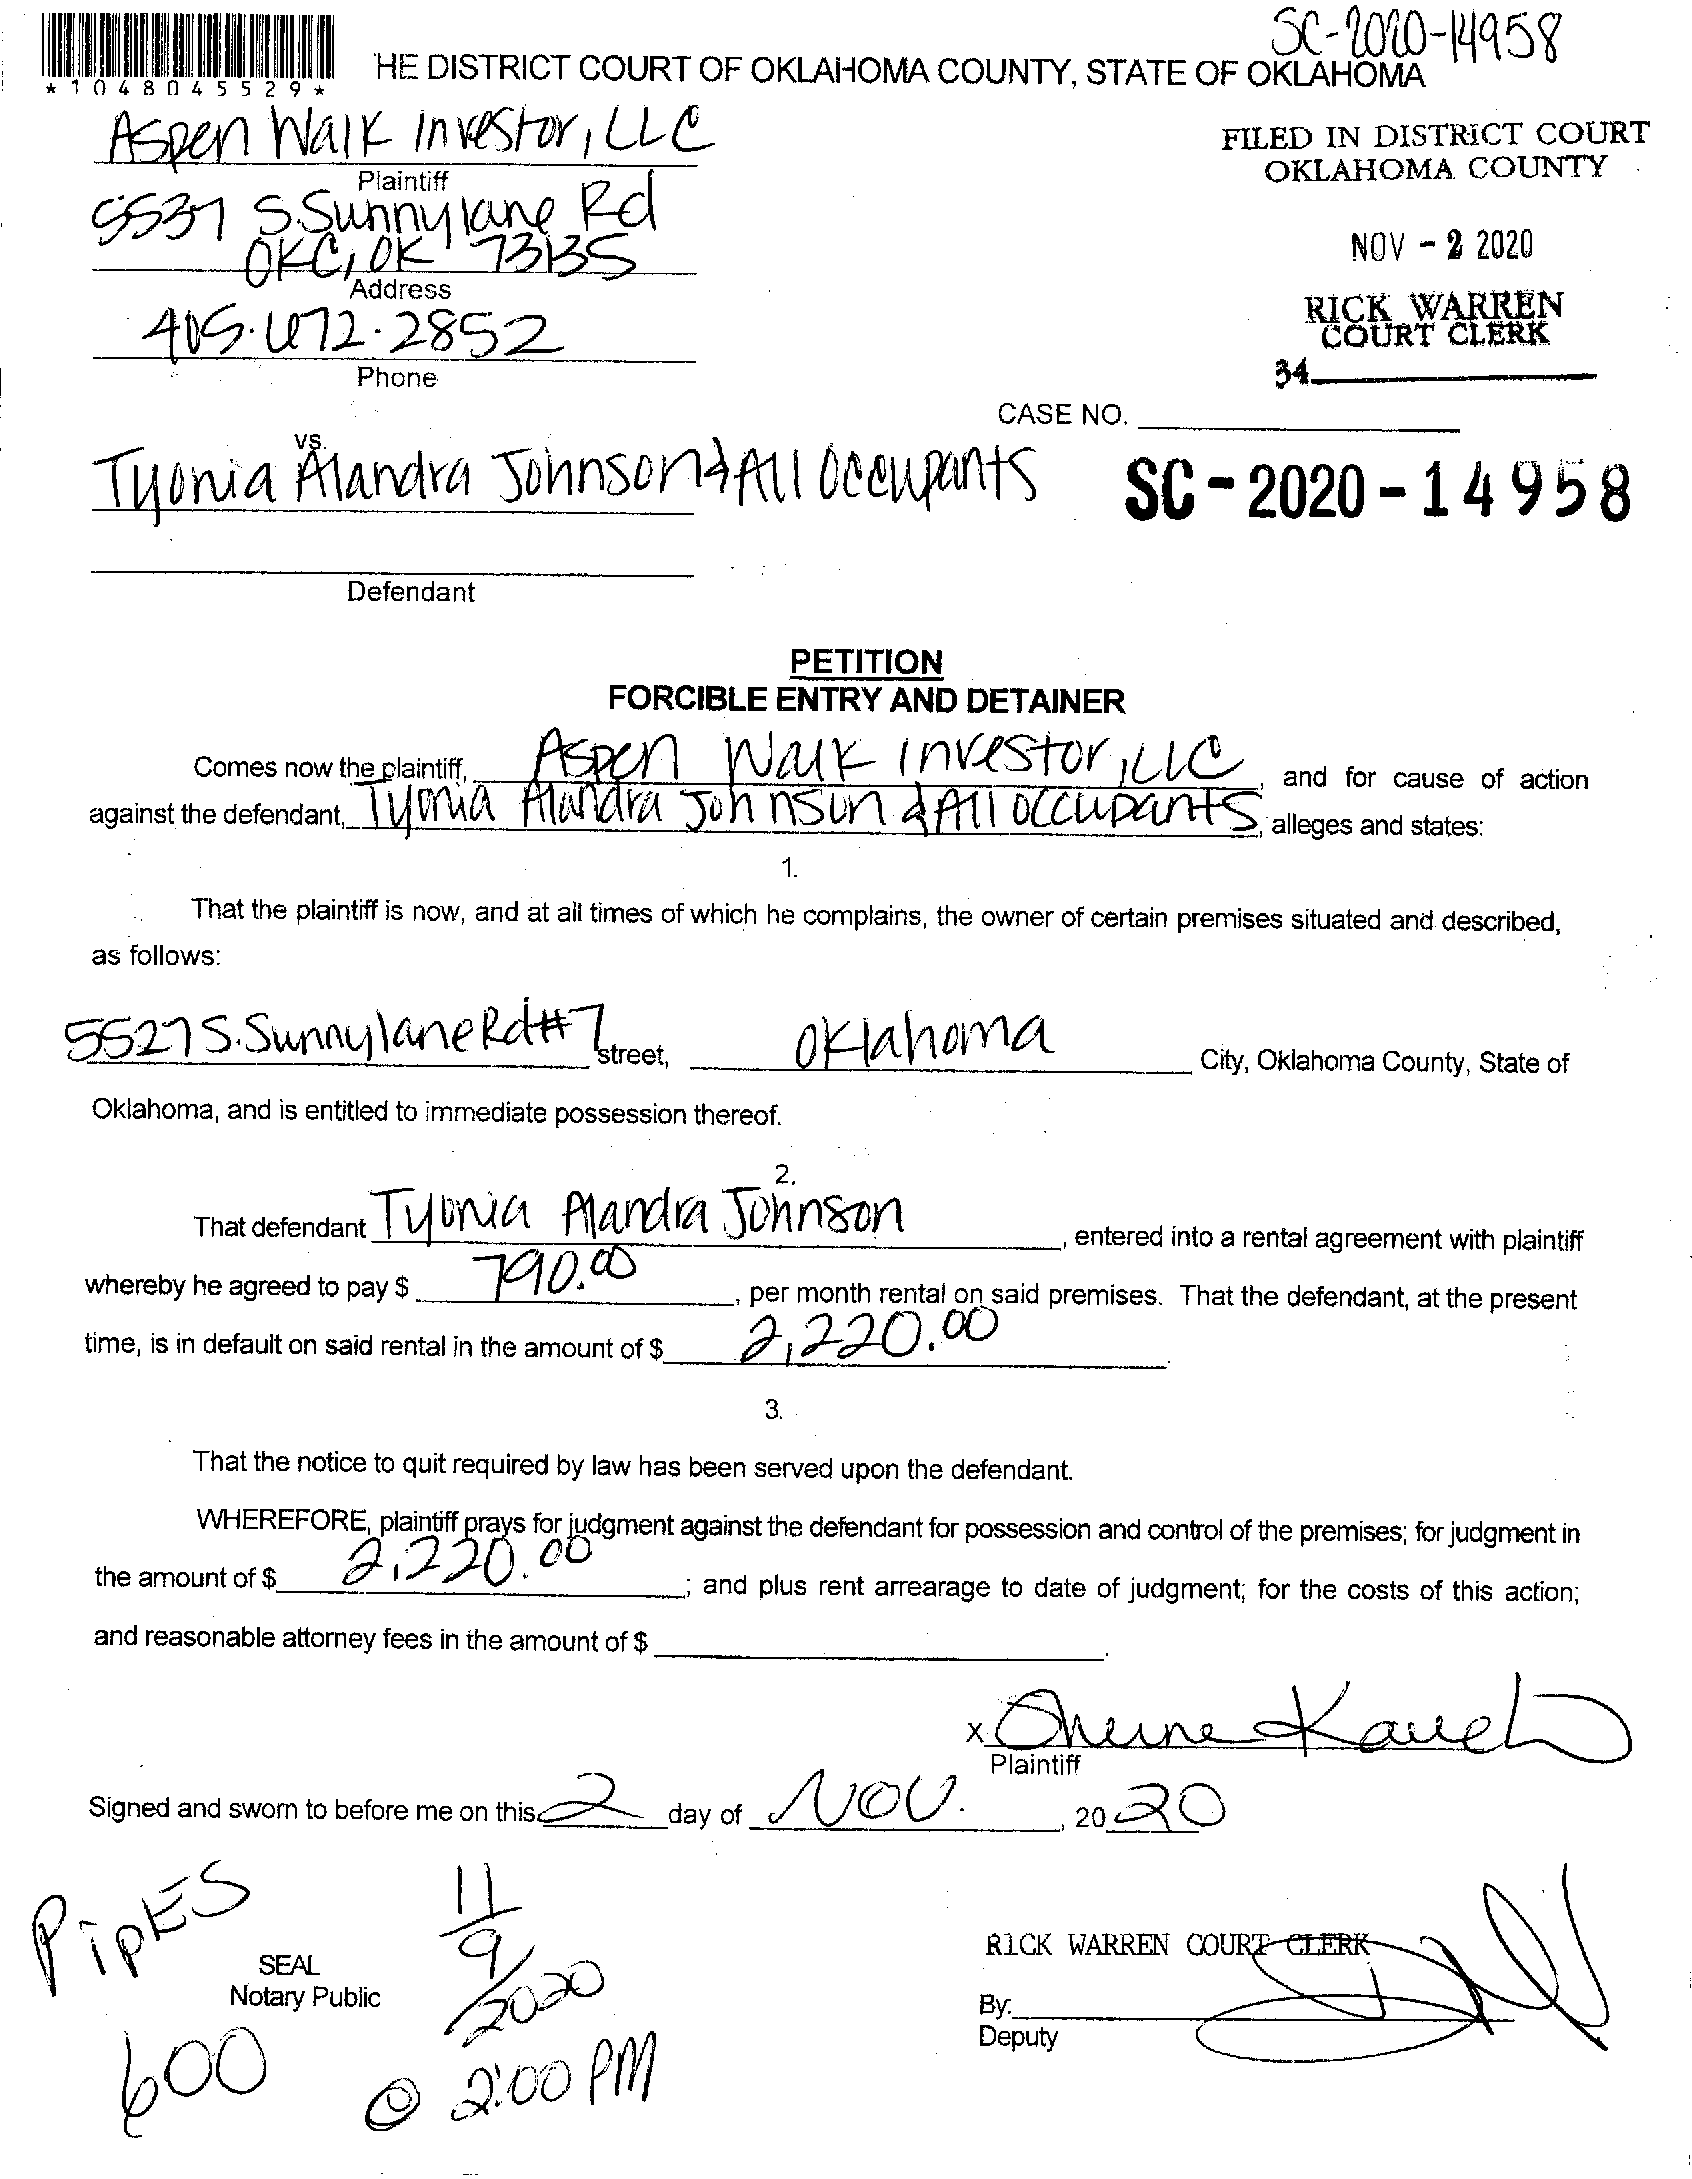 SC-2020-14958
HE DISTRICT COURT OF OKLAHOMA COUNTY, STATE OF OKLAHOMA
*1048045529*
Aspen Walk Investor, LLC
Plaintiff
FILED IN DISTRICT COURT
OKLAHOMA COUNTY
5537 S. Sunnylane Rd
OKC, OK 73135
Address
NOV - 2 2020
405.672.2852
Phone
RICK WARREN
COURT CLERK
34
CASE NO.
vs.
Tyonia Alandra Johnson & All Occupants
SC-2020-14958
Defendant
PETITION
FORCIBLE ENTRY AND DETAINER
Comes now the plaintiff, Aspen Walk Investor, LLC, and for cause of action
against the defendant, Tyonia Alandra Johnson & All Occupants, alleges and states:
1.
That the plaintiff is now, and at all times of which he complains, the owner of certain premises situated and described,
as follows:
5527 S. Sunnylane Rd #7 street, Oklahoma City, Oklahoma County, State of
Oklahoma, and is entitled to immediate possession thereof.
2.
That defendant Tyonia Alandra Johnson, entered into a rental agreement with plaintiff
whereby he agreed to pay $ 790.00, per month rental on said premises. That the defendant, at the present
time, is in default on said rental in the amount of $ 2,220.00
3.
That the notice to quit required by law has been served upon the defendant.
WHEREFORE, plaintiff prays for judgment against the defendant for possession and control of the premises; for judgment in
the amount of $ 2,220.00; and plus rent arrearage to date of judgment; for the costs of this action;
and reasonable attorney fees in the amount of $
x
Plaintiff
Signed and sworn to before me on this 2 day of NOV., 2020
PipES
11/9/2020
SEAL
Notary Public
RICK WARREN COURT CLERK
By:
Deputy
600
@ 2:00 PM